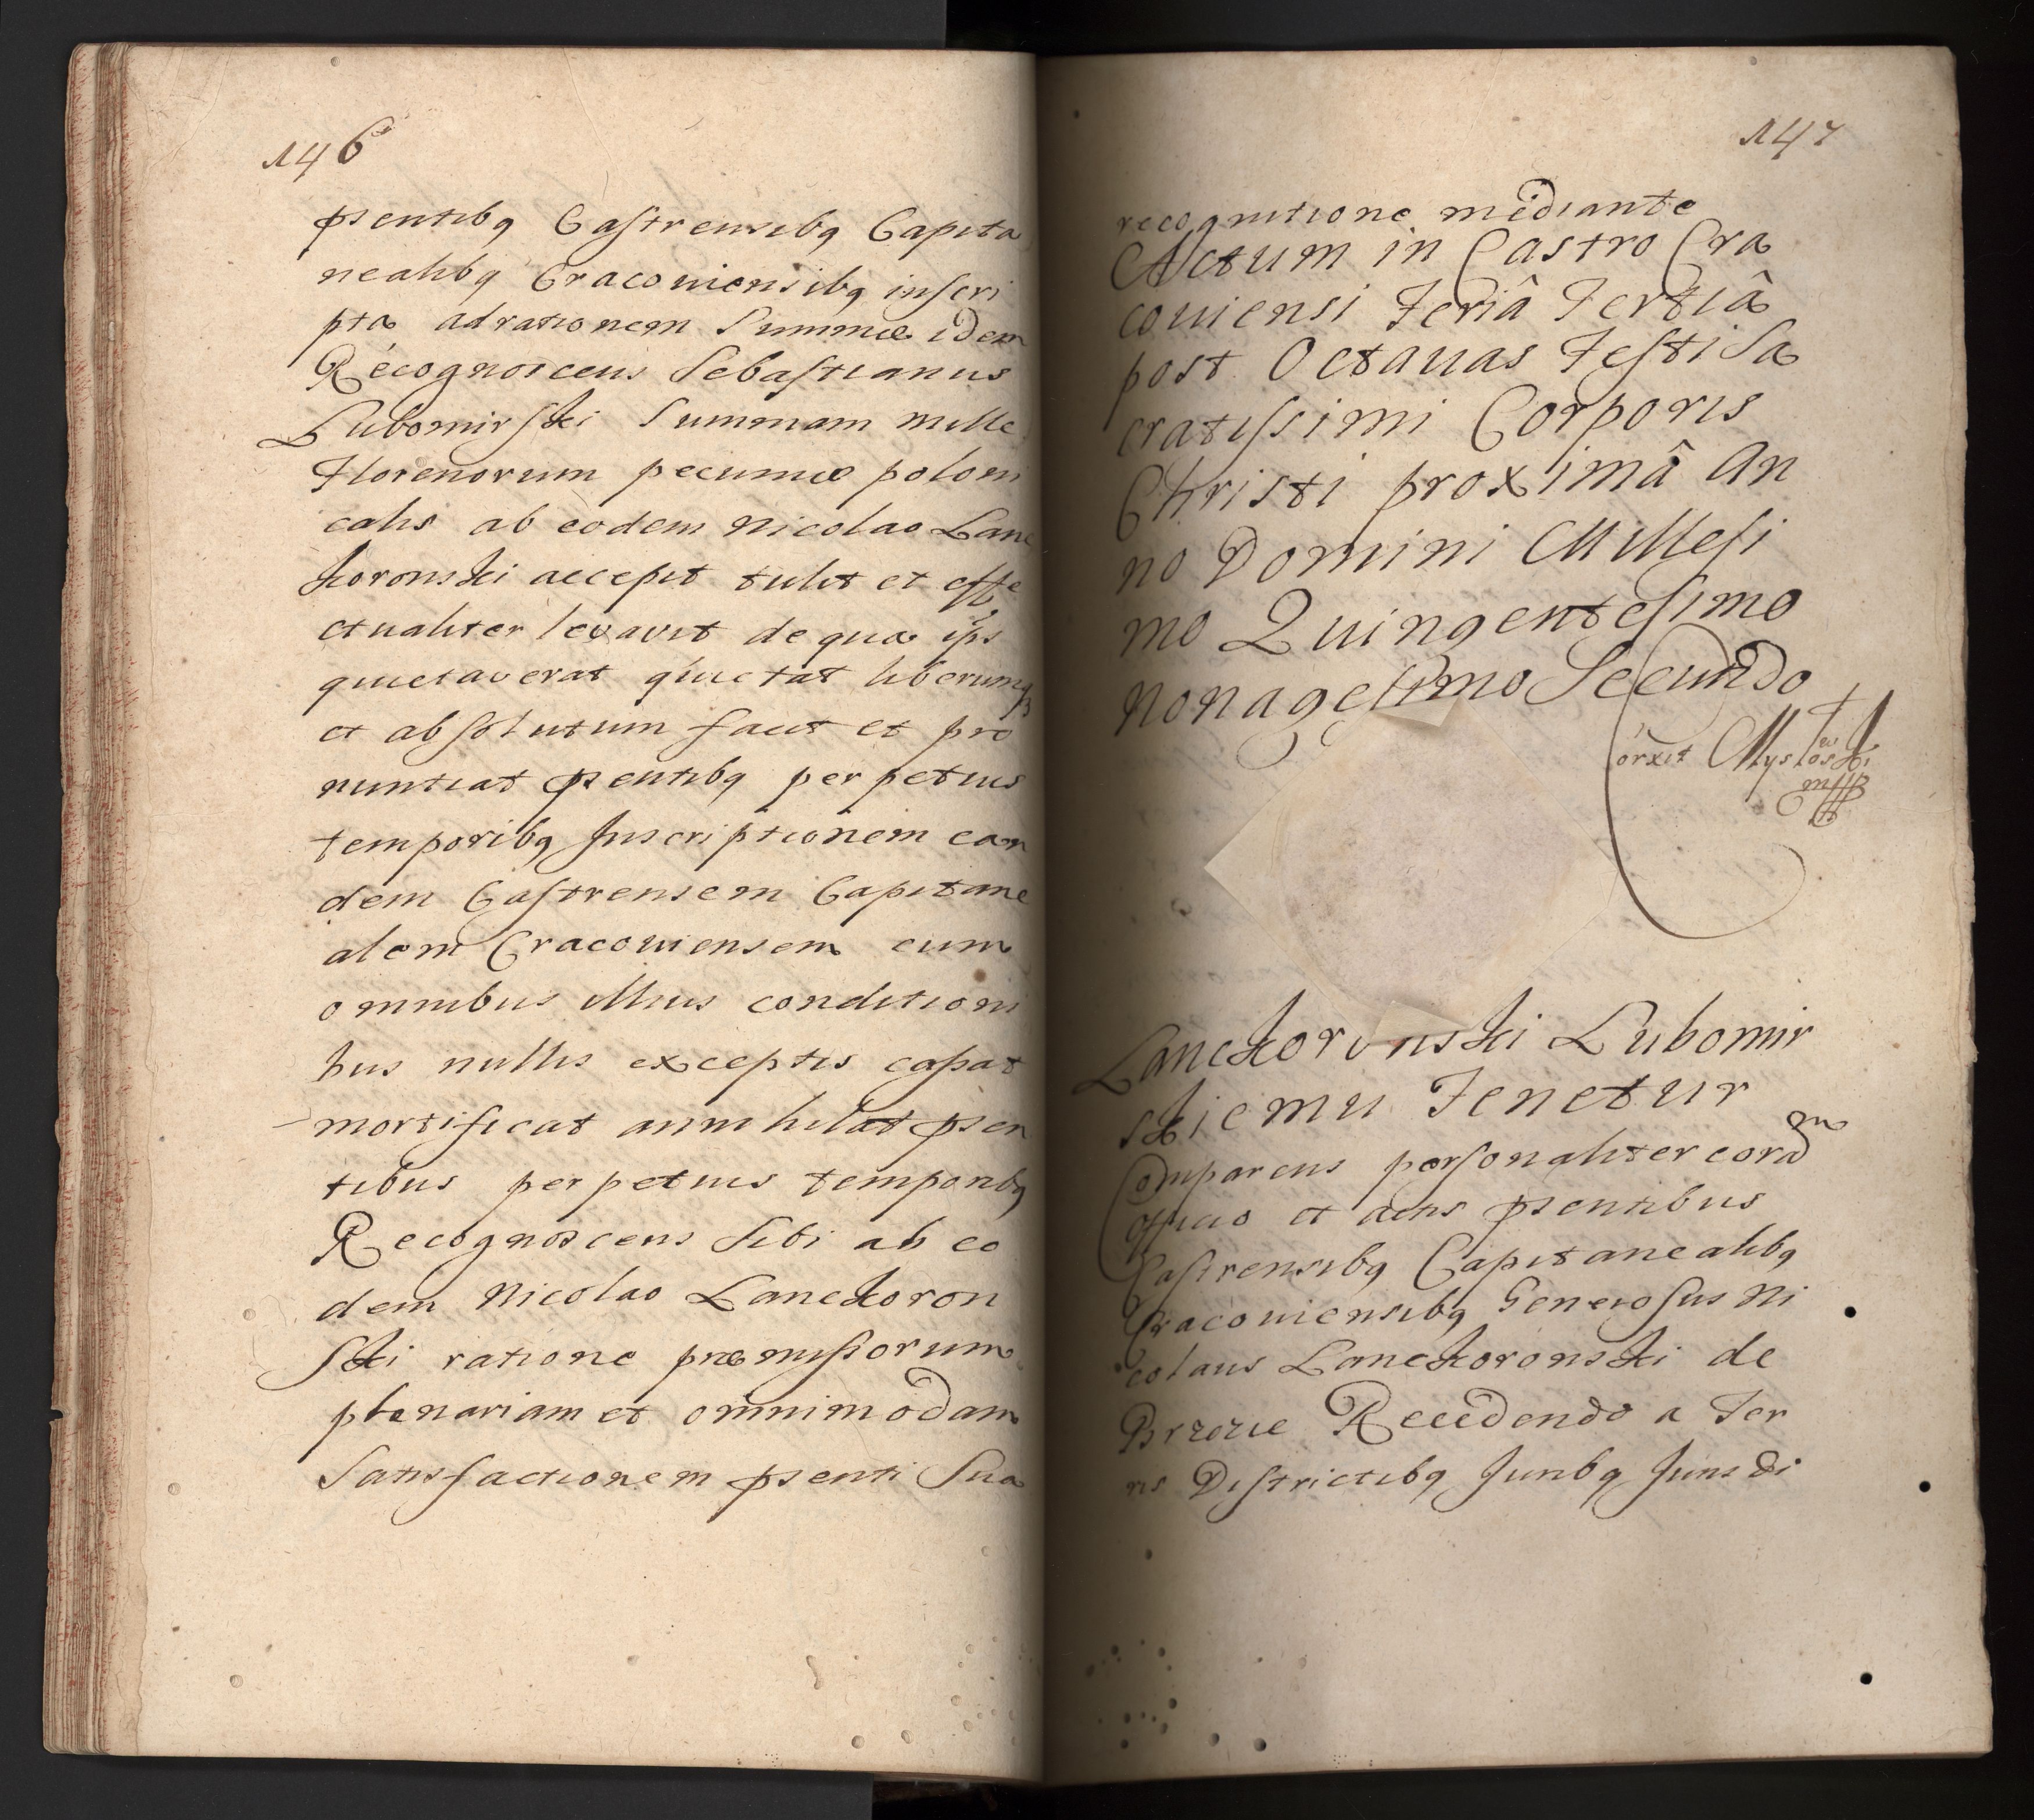 146
psentibq Castrensibq Capita
nealibq Cracoviensibq inscri
pta ad rationem Summæ idem
Recognoscens Sebastianus
Lubomirski Summam mille
Florenorum pecuniæ poloni
calis ab eodem Nicolao Lanc
koronski accepit tulit et effe
ctualiter levavit de qua ips
quietaverat quietat liberumq
et absolutum facit et pro
nuntiat psentibq perpetuis
temporibq Inscriptionem ean
dem Castrensem Capitane
alem Cracoviensem cum
omnibus illius conditioni
bus nullis exceptis cassat
mortificat annihilat psen
tibus perpetuis temporibq
Recognoscens Sibi ab eo
dem Nicolao Lanckoron
ski ratione præmissorum
plenariam et omnimodam
Satisfactionem psenti Sua
147
recognitione mediante
Actum in Castro Cra
coviensi Feriâ Tertiâ
post Octauas Festi Sa
cratissimi Corporis
Christi proximâ An
no Domini Millesi
mo Quingentesimo
nonagesimo Secundo
Corxit Myslowski
mpp
Lanckoronski Lubomir
skiemu Tenetur
Comparens personaliter coram
officio et actis psentibus
Castrensibq Capitanealibq
Cracoviensibq Generosus Ni
colaus Lanckoronski de
Brzezie Recedendo a Ter
ris Districtibq Juribq Jurisdi